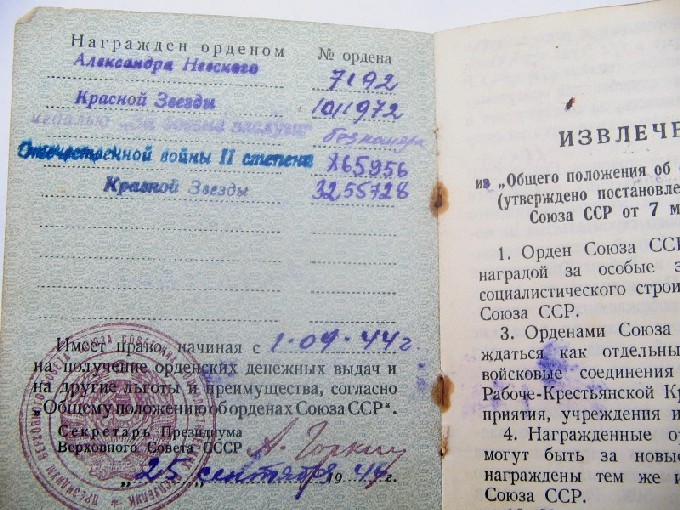 Награжден орденом № ордена
Александра Невского 7192
Красной Звезды 1011972
медалью „За боевые заслуги“ без номера
Отечественной войны II степени 865956
Красной Звезды 3255728
Имеет право, начиная с 1-09-44 г.
на получение орденских денежных выдач и
на другие льготы и преимущества, согласно
„Общему положению об орденах Союза ССР“.
Секретарь Президиума
Верховного Совета СССР А. Горкин
„25“ сентября 1944 г.
ИЗВЛЕЧЕ
из „Общего положения об
(утверждено постановле
Союза ССР от 7 м
1. Орден Союза ССР
наградой за особые з
социалистического строи
Союза ССР.
3. Орденами Союза
ждаться как отдельны
войсковые соединения
Рабоче-Крестьянской Кр
приятия, учреждения и
4. Награжденные ор
могут быть за новые
награждены тем же и
Союза ССР.